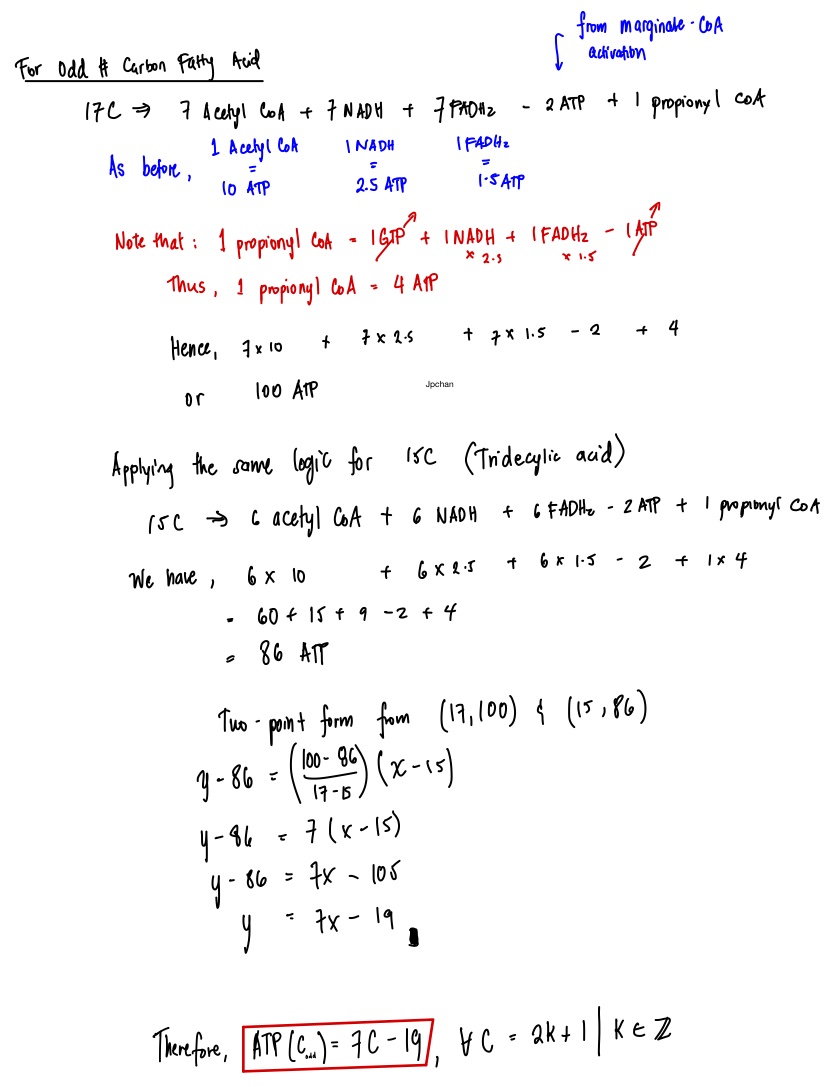 from marginate-CoA
activation
For Odd # Carbon Fatty Acid
17C ⇒ 7 Acetyl CoA + 7 NADH + 7 FADH₂ - 2 ATP + 1 propionyl CoA
As before, 1 Acetyl CoA = 10 ATP 1 NADH = 2.5 ATP 1 FADH₂ = 1.5 ATP
Note that: 1 propionyl CoA = 1 GTP + 1 NADH + 1 FADH₂ - 1 ATP
× 2.5 × 1.5
Thus, 1 propionyl CoA = 4 ATP
Hence, 7 × 10 + 7 × 2.5 + 7 × 1.5 - 2 + 4
or 100 ATP
Jpchan
Applying the same logic for 15C (Tridecylic acid)
15C ⇒ 6 acetyl CoA + 6 NADH + 6 FADH₂ - 2 ATP + 1 propionyl CoA
We have, 6 × 10 + 6 × 2.5 + 6 × 1.5 - 2 + 1 × 4
= 60 + 15 + 9 - 2 + 4
= 86 ATP
Two-point form from (17,100) & (15,86)
y - 86 = (100 - 86 / 17 - 15) (x - 15)
y - 86 = 7 (x - 15)
y - 86 = 7x - 105
y = 7x - 19
Therefore, ATP(C_odd) = 7C - 19, ∀ C = 2k + 1 | K ∈ ℤ